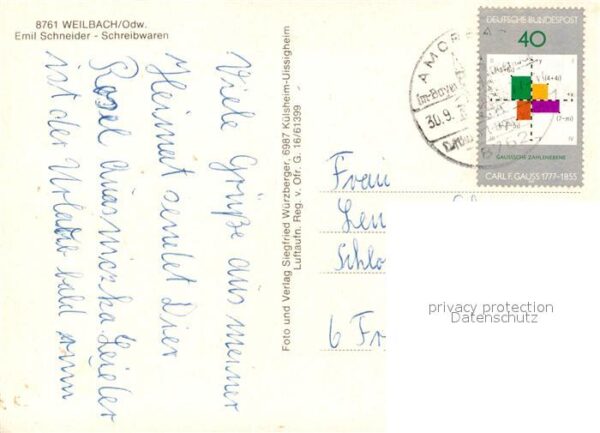 8761 WEILBACH/Odw.
Emil Schneider - Schreibwaren
Viele Grüße aus meiner
Heimat sendet Dier
Rosel
ist der Urlaub bald rum
Foto und Verlag Siegfried Würzberger, 6987 Külsheim-Uissigheim
Luftaufn. Reg. v. Ofr. G. 16/61399
30.9.
8762
DEUTSCHE BUNDESPOST
40
GAUSSSCHE ZAHLENEBENE
CARL F. GAUSS 1777-1855
Frau
Schlo
6 Fr
privacy protection
Datenschutz